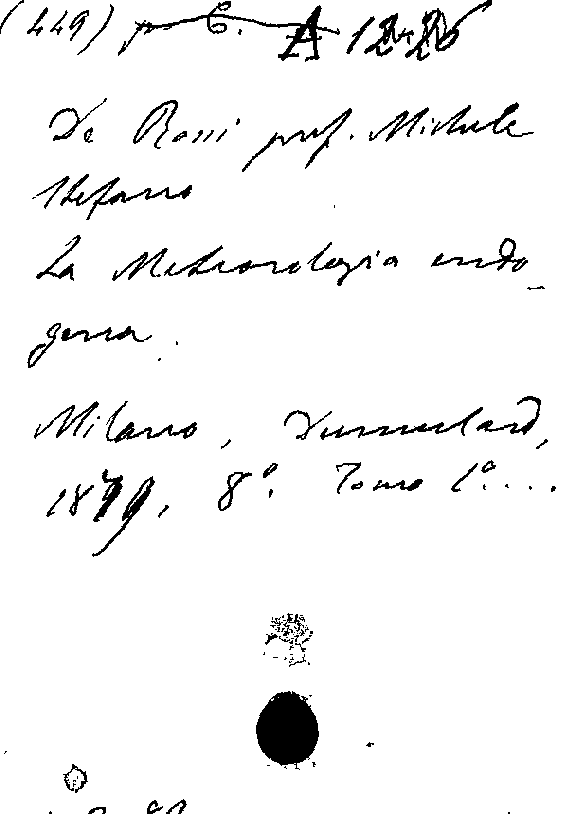 (449) A 12
De Rossi prof. Michele
Stefano
La Meteorologia endo_
gena.
Milano, Dumolard,
1879, 8º. Tomo 1º....